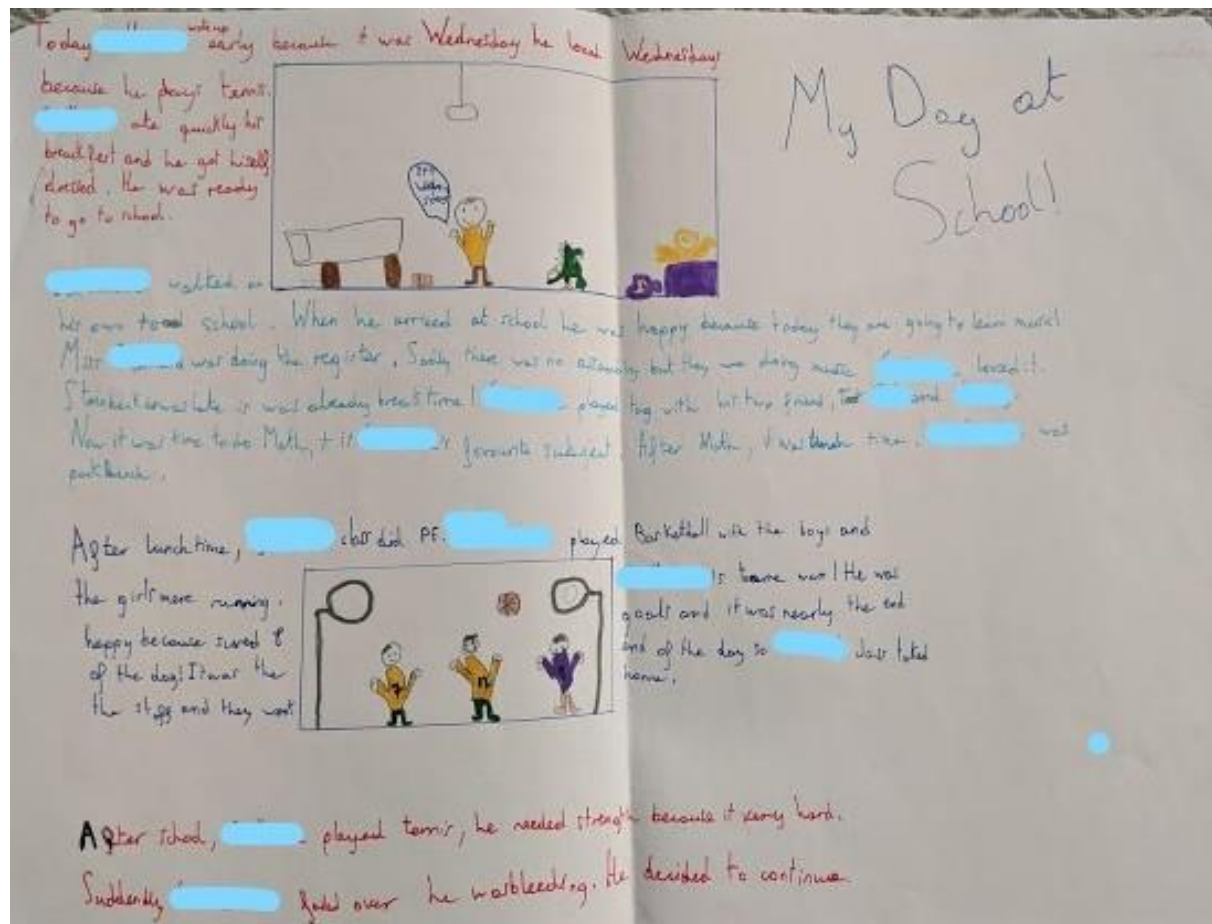 My Day at
School!
Today woke up early because it was Wednesday he loved Wednesdays
because he plays tennis.
ate quickly his
breakfest and he got hiself
dressed. He was ready
to go to school.
It's
Wedne
sday
walked on
his own to school. When he arrived at school he was happy because today they are going to learn music!
Miss was doing the register. Sadly there was no assembly but they were doing music loved it.
it was already break time! played tag with his two friend, and
Now it was time to do Math, 's favourite subject. After Math, it was lunch time. was
pack lunch.
After lunch time, class did PE. played Basketball with the boys and
the girls were running. 's team won! He was
happy because scored 8 goals and it was nearly the end
of the day! It was the end of the day so class
the and they went home.
7
After school, played tennis, he needed strength because it very hard.
Suddendly over he was bleeding. He decided to continue